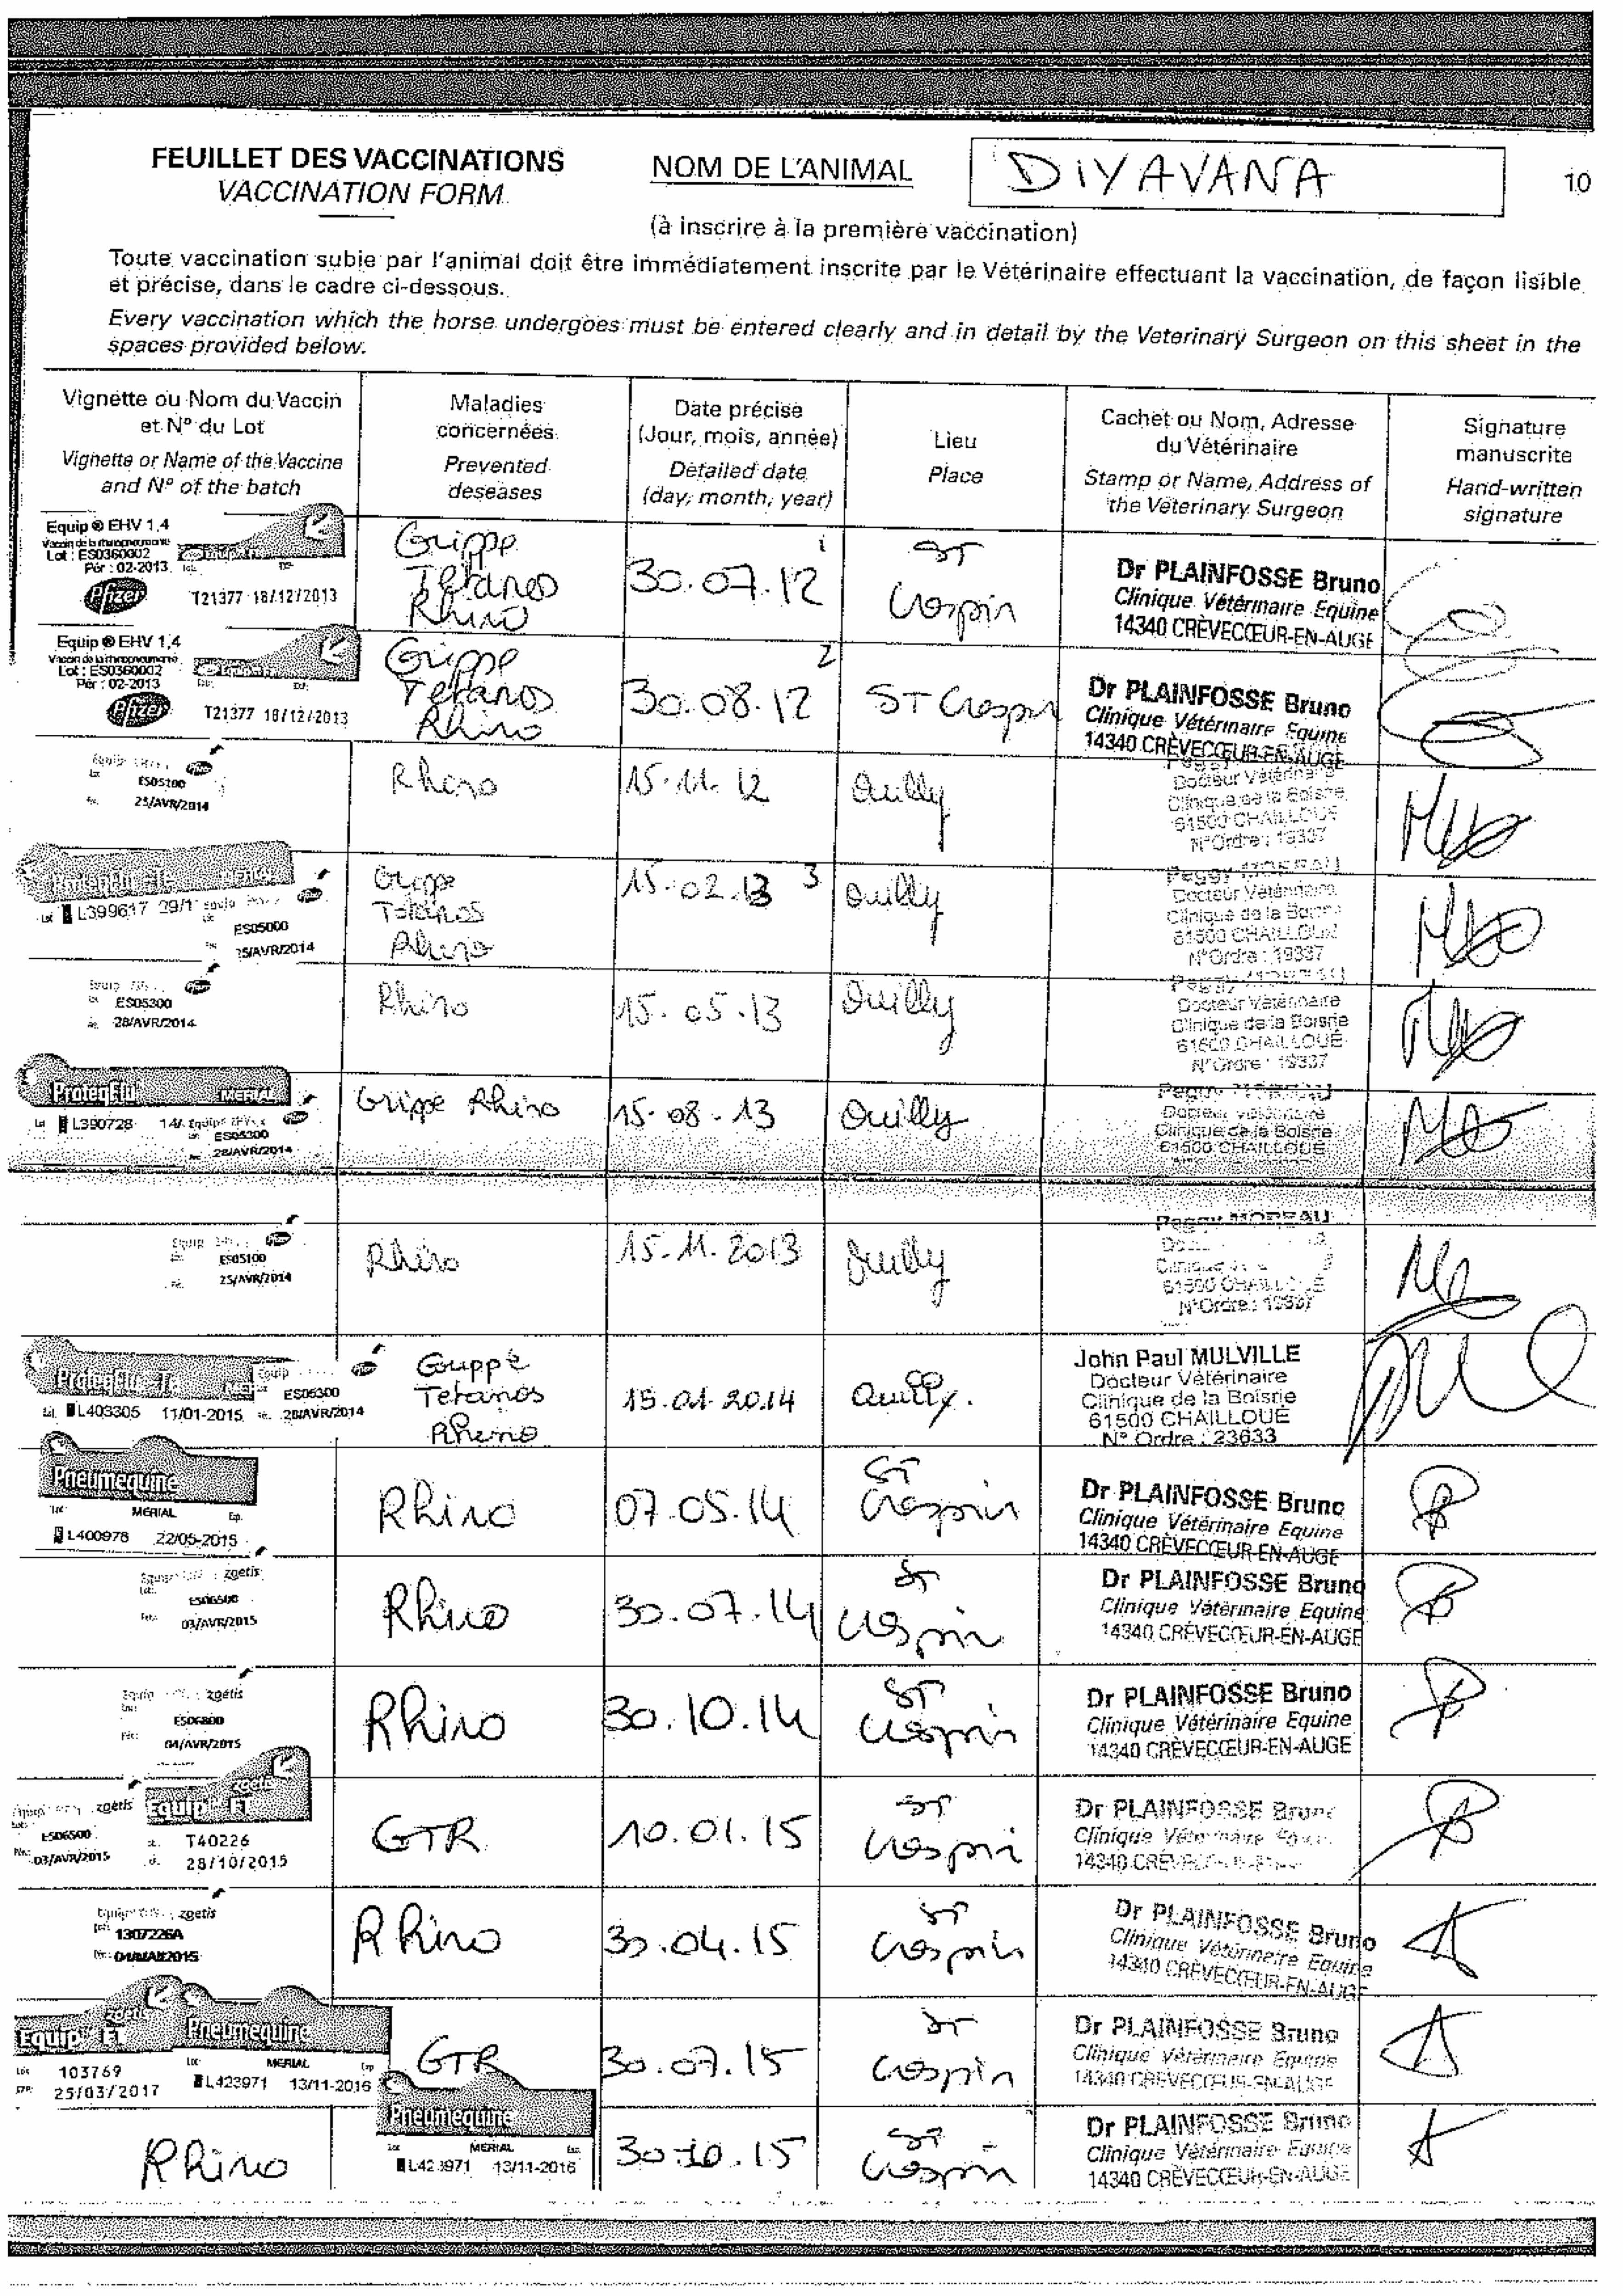 FEUILLET DES VACCINATIONS
VACCINATION FORM
NOM DE L'ANIMAL
DiYAVANA
10
(à inscrire à la première vaccination)
Toute vaccination subie par l'animal doit être immédiatement inscrite par le Vétérinaire effectuant la vaccination, de façon lisible
et précise, dans le cadre ci-dessous.
Every vaccination which the horse undergoes must be entered clearly and in detail by the Veterinary Surgeon on this sheet in the
spaces provided below.
Vignette ou Nom du Vaccin
et N° du Lot
Vignette or Name of the Vaccine
and N° of the batch
Maladies
concernées
Prevented
deseases
Date précise
(Jour, mois, année)
Detailed date
(day, month, year)
Lieu
Place
Cachet ou Nom, Adresse
du Vétérinaire
Stamp or Name, Address of
the Veterinary Surgeon
Signature
manuscrite
Hand-written
signature
Equip ® EHV 1,4
Lot : ES0360002
Pér : 02-2013
Pfizer
T21377 18/12/2013
Grippe
Tetanos
Rhino
1
30.07.12
ST
Crespin
Dr PLAINFOSSE Bruno
Clinique Vétérinaire Equine
14340 CRÈVECŒUR-EN-AUGE
Equip ® EHV 1,4
Lot : ES0360002
Pér : 02-2013
Pfizer
T21377 18/12/2013
Grippe
Tetanos
Rhino
2
30.08.12
ST Crespin
Dr PLAINFOSSE Bruno
Clinique Vétérinaire Equine
14340 CRÈVECŒUR-EN-AUGE
Equip
ES05100
25/AVR/2014
Rhino
15.11.12
Ouilly
Peggy
Docteur Vétérinaire
Clinique de la Boisrie
61500 CHAILLOUÉ
N°Ordre : 19337
ProteqFlu Te
L399617
ES05000
Grippe
Tetanos
Rhino
15.02.13 3
Ouilly
Peggy MOREAU
Docteur Vétérinaire
Clinique de la Boisrie
61500 CHAILLOUÉ
N°Ordre : 19337
ES05300
28/AVR/2014
Rhino
15.05.13
Ouilly
Peggy MOREAU
Docteur Vétérinaire
Clinique de la Boisrie
61500 CHAILLOUÉ
N°Ordre : 19337
ProteqFlu
MERIAL
L390728
ES05300
28/AVR/2014
Grippe Rhino
15.08.13
Ouilly
Peggy MOREAU
Docteur Vétérinaire
Clinique de la Boisrie
61500 CHAILLOUÉ
Equip
ES05100
25/AVR/2014
Rhino
15.11.2013
Ouilly
Peggy MOREAU
61500 CHAILLOUÉ
N°Ordre : 19337
ProteqFlu Te
L403305 11/01-2015
ES05300
28/AVR/2014
Grippe
Tetanos
Rhino
15.01.2014
Ouilly.
John Paul MULVILLE
Docteur Vétérinaire
Clinique de la Boisrie
61500 CHAILLOUÉ
N° Ordre : 23633
Pneumequine
Lot MERIAL Exp.
L400978 22/05-2015
Rhino
07.05.14
ST
Crespin
Dr PLAINFOSSE Bruno
Clinique Vétérinaire Equine
14340 CRÈVECŒUR-EN-AUGE
zoetis
ES06500
03/AVR/2015
Rhino
30.07.14
ST
Crespin
Dr PLAINFOSSE Bruno
Clinique Vétérinaire Equine
14340 CRÈVECŒUR-EN-AUGE
Equip zoetis
ES06800
04/AVR/2015
Rhino
30.10.14
ST
Crespin
Dr PLAINFOSSE Bruno
Clinique Vétérinaire Equine
14340 CRÈVECŒUR-EN-AUGE
zoetis
ES06500
03/AVR/2015
zoetis
Equip FT
T40226
28/10/2015
GTR
10.01.15
ST
Crespin
Dr PLAINFOSSE Bruno
Clinique
14340
zoetis
1307226A
Rhino
30.04.15
ST
Crespin
Dr PLAINFOSSE Bruno
Clinique Vétérinaire Equine
14340 CRÈVECŒUR-EN-AUGE
zoetis
Equip FT
103769
25/03/2017
Pneumequine
Lot MERIAL Exp
L423971 13/11-2016
GTR
30.07.15
ST
Crespin
Dr PLAINFOSSE Bruno
Clinique Vétérinaire Equine
14340 CRÈVECŒUR-EN-AUGE
Rhino
Pneumequine
Lot MERIAL Exp
13/11-2016
30.10.15
ST
Crespin
Dr PLAINFOSSE Bruno
Clinique Vétérinaire Equine
14340 CRÈVECŒUR-EN-AUGE